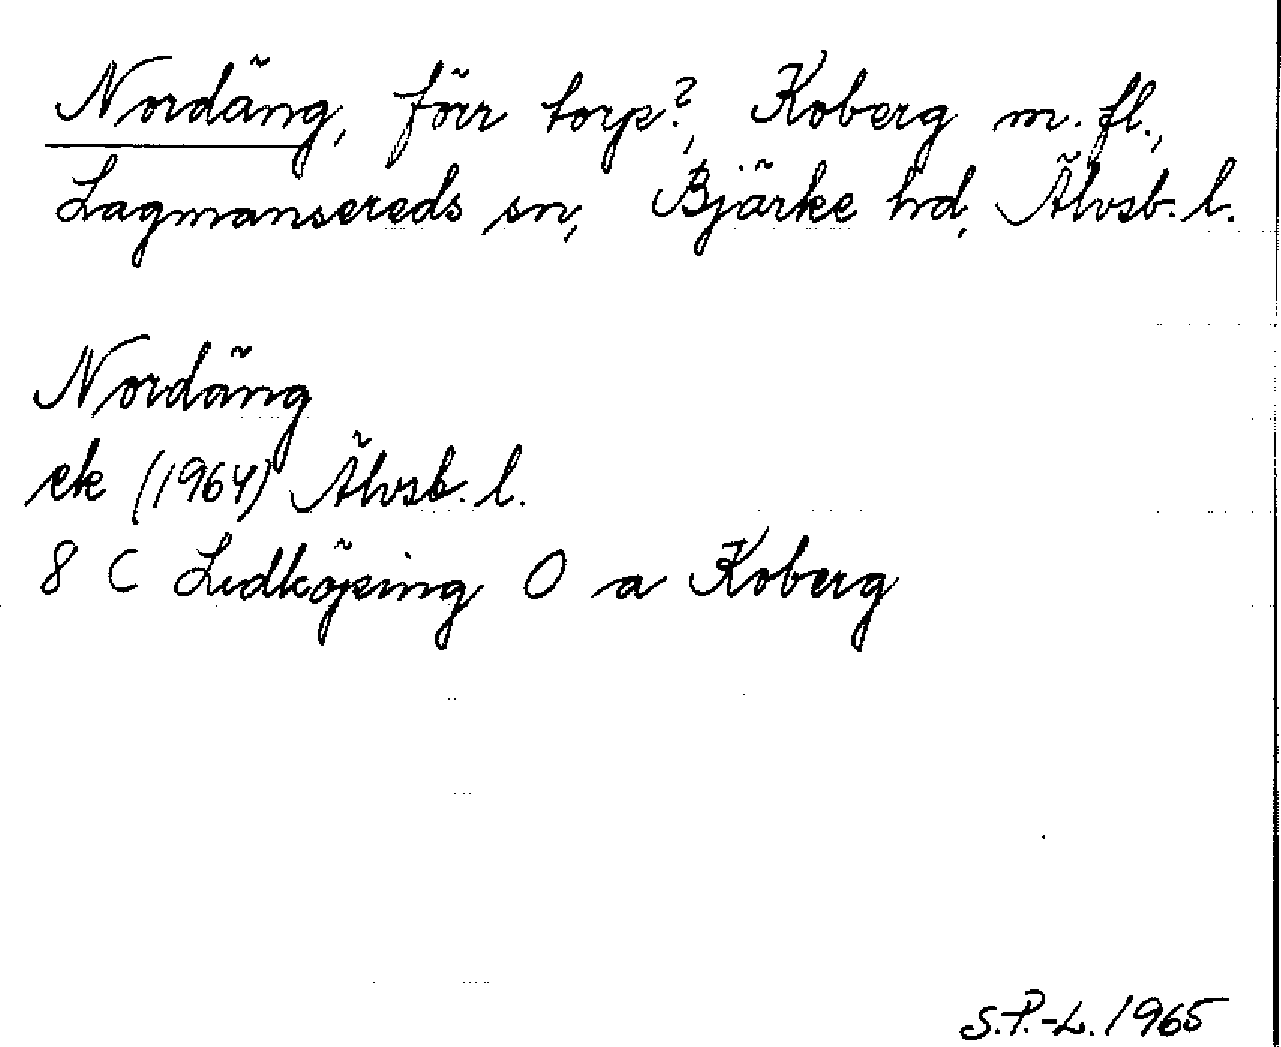 Nordäng, förr torp?, Koberg m. fl.,
Lagmansereds sn, Bjärke hd, Älvsb. l.
Nordäng
ek (1964) Älvsb. l.
8 C Lidköping O a Koberg
S.P.-L. 1965